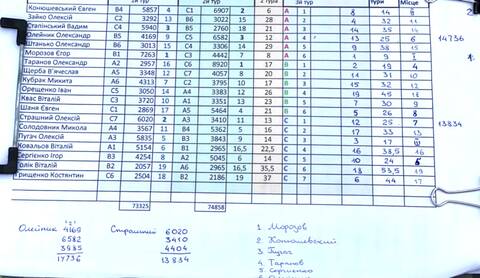 2 тури
тури Місце
Конюшевський Євген B4 5857 4 C1 6907 2 6 A 1 8 14
Зайко Олексій C2 3292 13 B6 3022 15 28 A 2 4 32 11
Стапінський Вадим C4 5940 3 B5 2760 18 21 A 3 14 35 14
Олейник Олександр B5 4169 9 C5 6582 3 12 A 4 13 25 6 14736
Штанько Олександр B6 3013 15 C4 3306 14 29 A 5 9 38 15
Морозов Єгор B1 7263 1 C3 4442 7 8 A 6 1 9 I
Таранов Олександр A2 2957 16 C6 8920 1 17 B 1 2 19 4
Щерба В'ячеслав A5 3348 12 C7 4057 8 20 B 2 11 31 10
Кубрак Микита A6 4313 7 C2 3795 10 17 B 3 15 32 12
Орещенко Іван C5 3050 14 A4 3383 12 26 B 4 19 45 18
Квас Віталій C3 3720 10 A1 3351 13 23 B 5 7 30 9
Шаня Євген C1 2869 17 A5 5464 4 21 B 6 5 26 8
Страшний Олексій C7 6020 2 A3 3410 11 13 C 1 12 25 7 13834
Солодовник Микола A4 3567 11 B4 5362 5 16 C 2 17 33 13
Пугач Олексій A3 5835 5 B3 3843 9 14 C 3 3 17
Ковальов Віталій A1 5154 6 B1 2965 16,5 22,5 C 4 16 38,5 16
Сергієнко Ігор B3 4254 8 A2 5045 6 14 C 5 10 24 5
Віталій B2 2057 19 A6 2965 16,5 35,5 C 6 18 53,5 19
Грищенко Костянтин C6 2504 18 B2 2186 19 37 C 7 6 44 17
73325 74858
Олейник 4169 Страшний 6020
6582 3410
3985 4404
14736 13834
1 Морозов
2 Конюшевський
3 Пугач
4 Таранов
5 Сергиенко